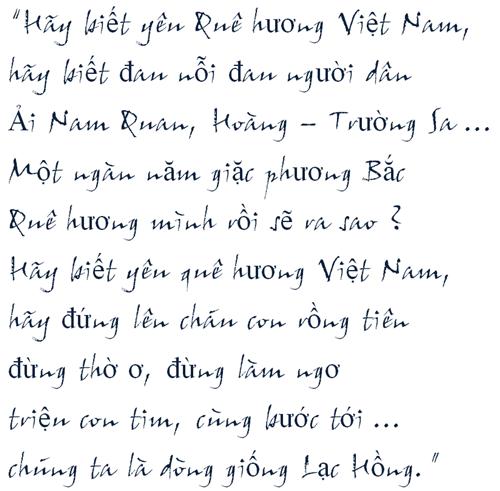 "Hãy biết yên Quê hương Việt Nam,
hãy biết đan nỗi đan người dân
Ải Nam Quan, Hoàng – Trường Sa ...
Một ngàn năm giặc phương Bắc
Quê hương mình rồi sẽ ra sao ?
Hãy biết yên quê hương Việt Nam,
hãy đứng lên cháu con rồng tiên
đừng thờ ơ, đừng làm ngơ
triệu con tim, cùng bước tới ...
chúng ta là dòng giống Lạc Hồng."